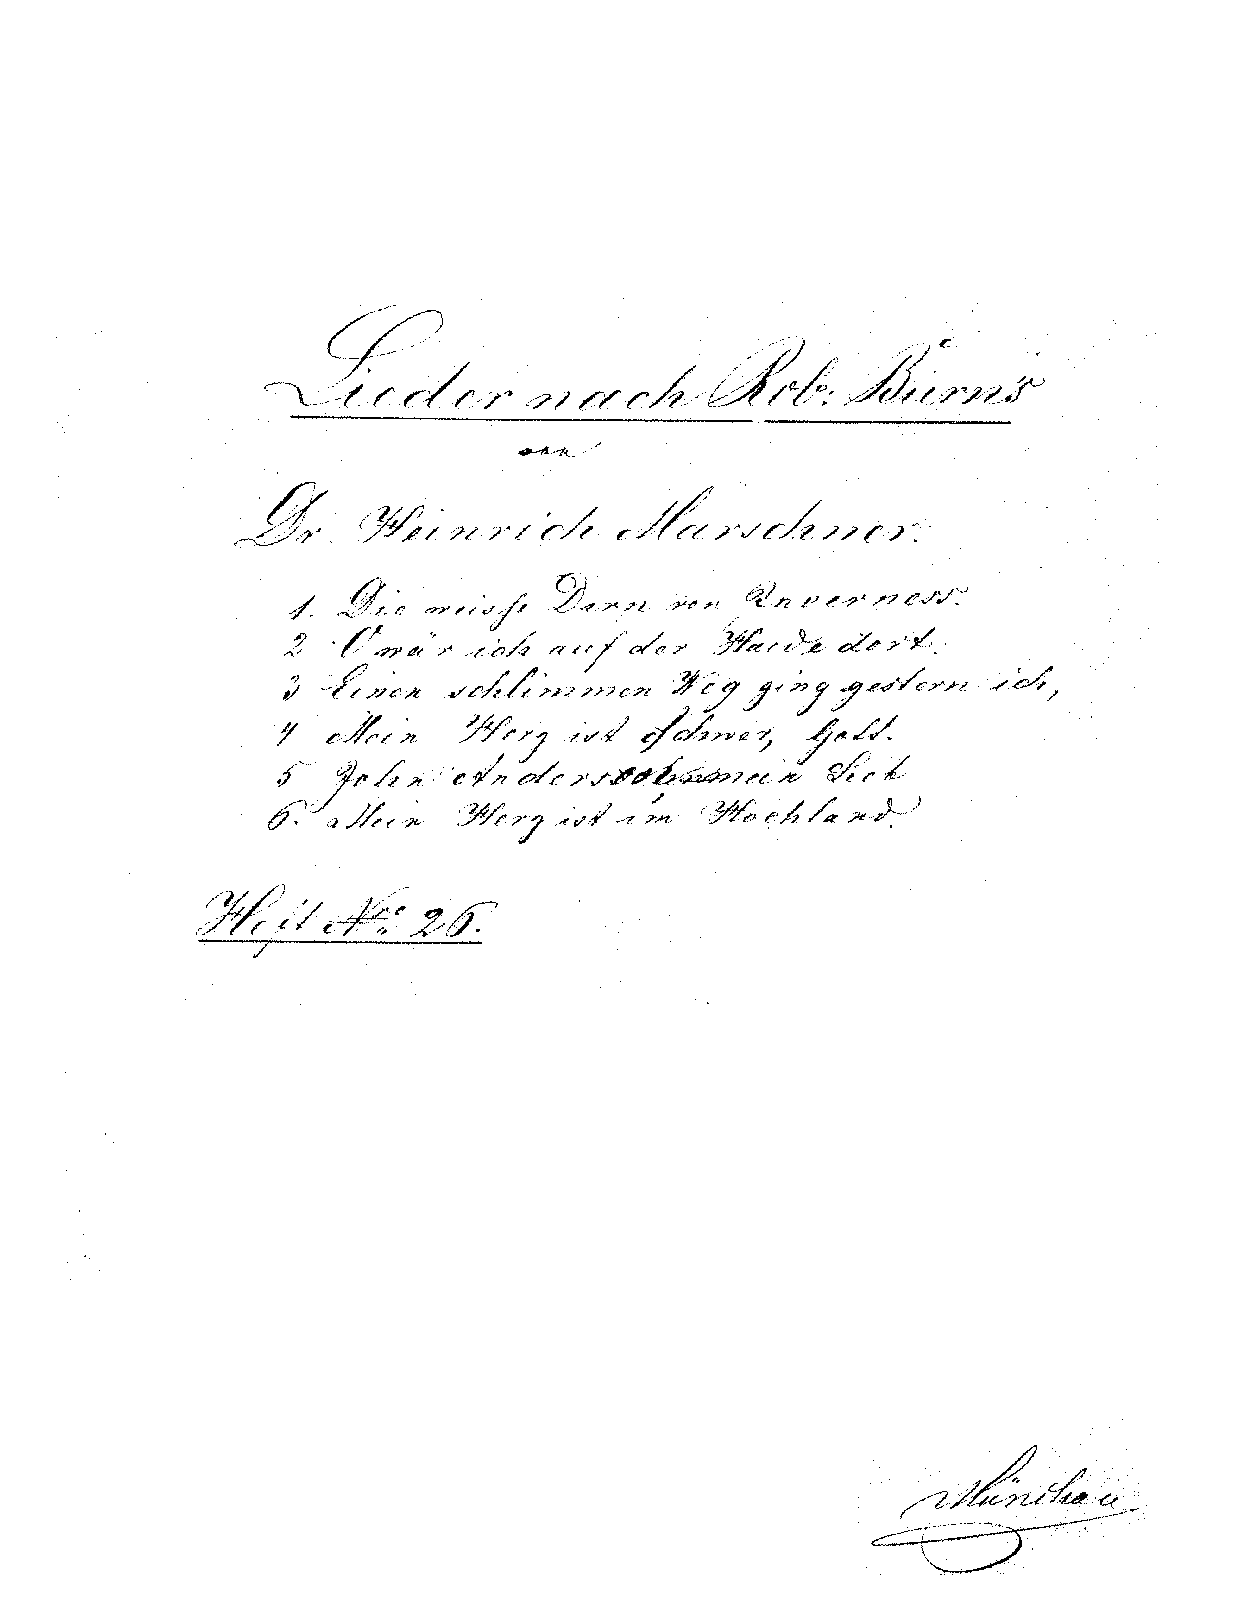 Lieder nach Rob: Burns
von
Dr. Heinrich Marschner.
1. Die weisse Dirn von Inverness.
2 O wär ich auf der Haide dort.
3 Einen schlimmen Weg ging gestern ich,
4 Mein Herz ist schwer, Gott.
5 John Anderson mein Lieb
6. Mein Herz ist im Hochland.
Heft Nro 26.